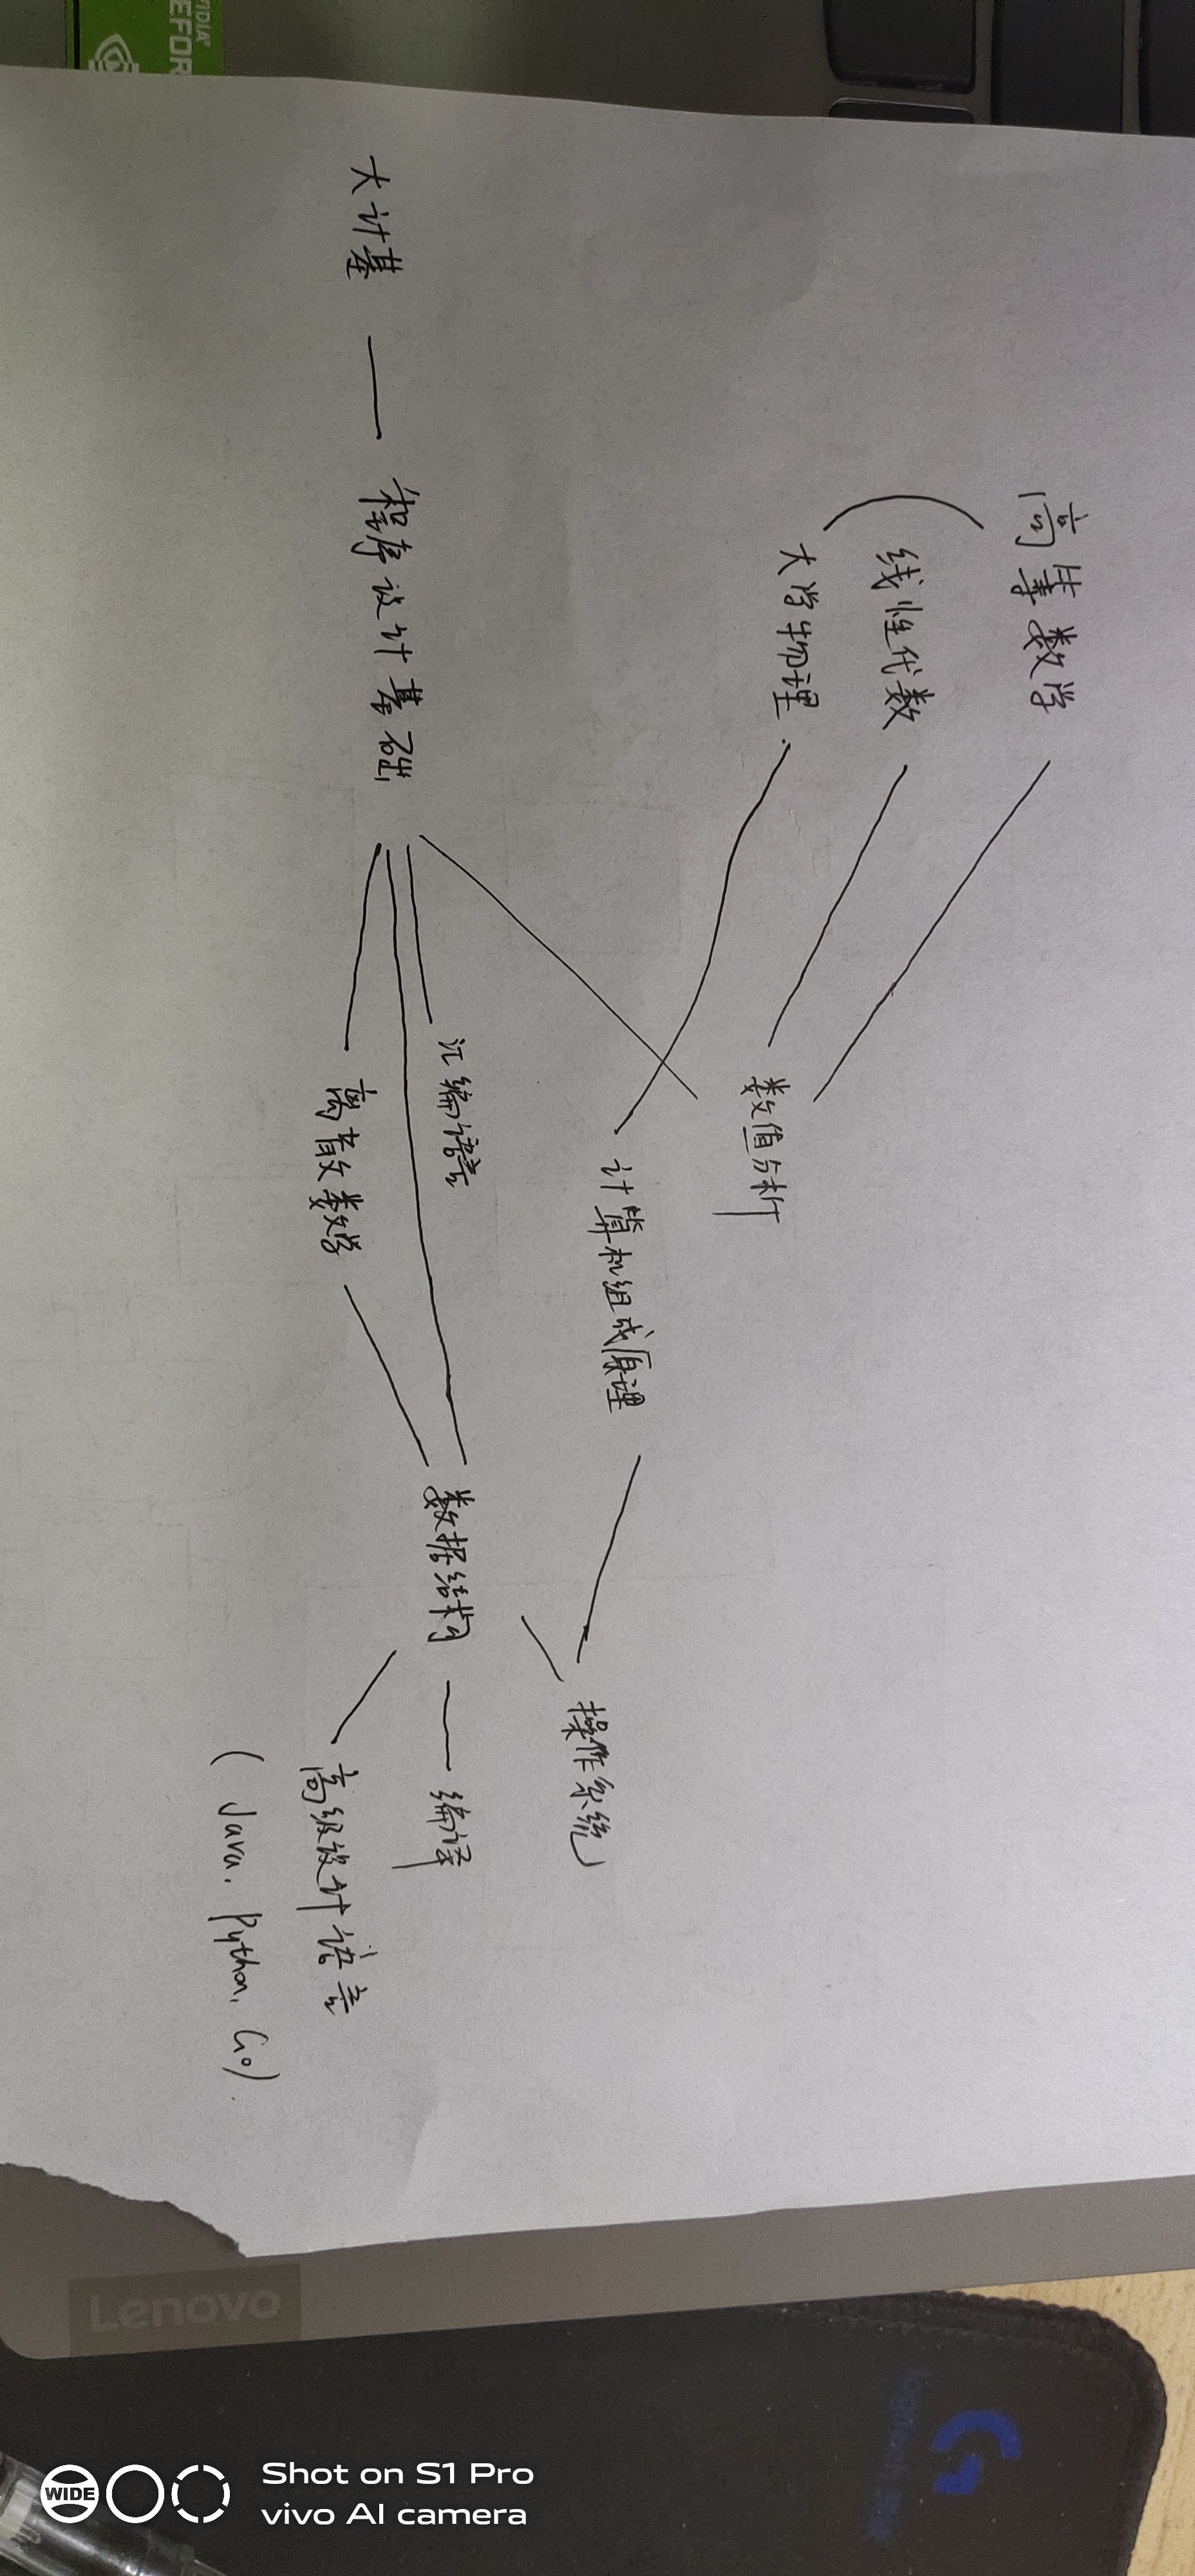 高等数学
线性代数
大学物理
数值分析
计算机组成原理
操作系统
汇编语言
数据结构
编译
大计基
程序设计基础
离散数学
高级设计语言
(Java, Python, Go).
Lenovo
Shot on S1 Pro
vivo AI camera
WIDE